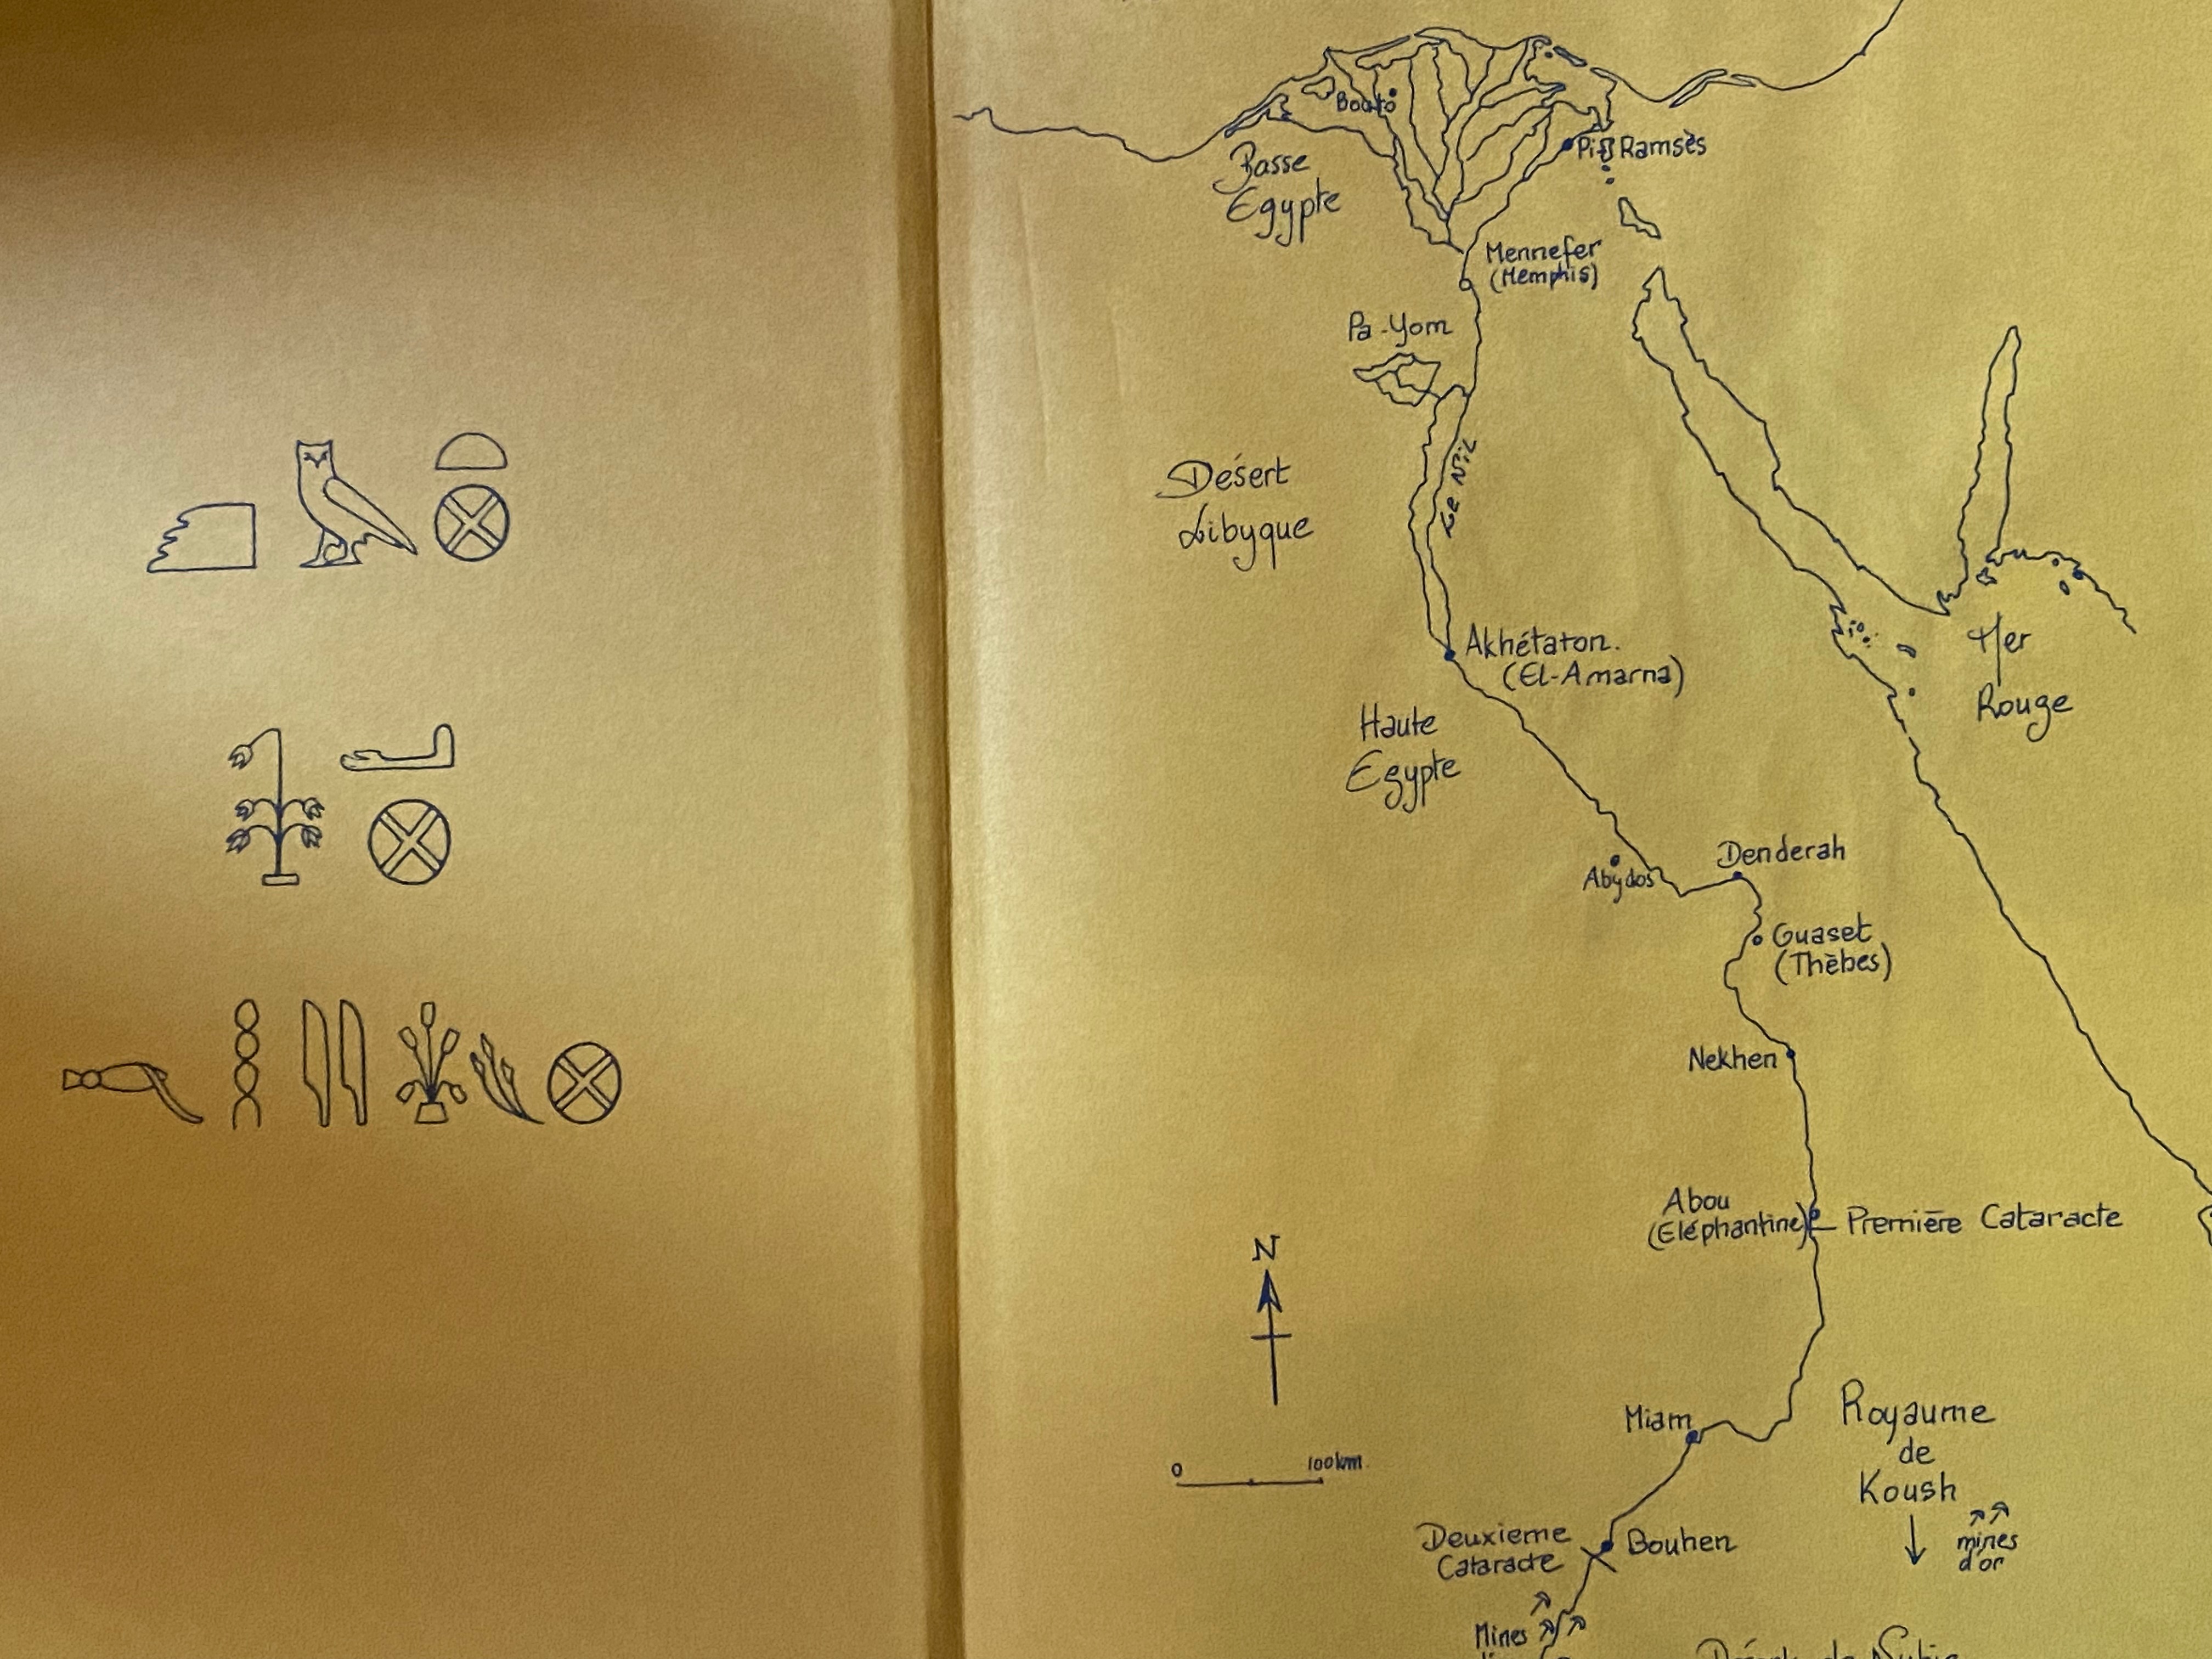 Bouto
Pi Ramsès
Basse
Egypte
Mennefer
(Memphis)
Pa-Yom
Le Nil
Désert
Libyque
Akhétaton.
(El-Amarna)
Mer
Rouge
Haute
Egypte
Denderah
Abydos
Ouaset
(Thèbes)
Nekhen
Abou
(Eléphantine)
Première Cataracte
N
Miam
Royaume
de
Koush
0 100km.
mines
d'or
Deuxieme
Cataracte
Bouhen
Mines